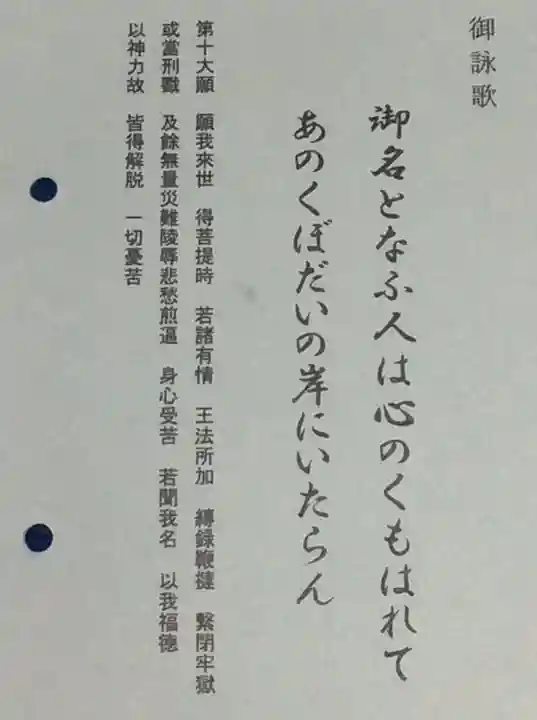 御詠歌
御名となふ人は心のくもはれて
あのくぼだいの岸にいたらん
第十大願　願我來世　得菩提時　若諸有情　王法所加　縛録鞭撻　繫閉牢獄
或當刑戮　及餘無量災難陵辱悲愁煎逼　身心受苦　若聞我名　以我福德
以神力故　皆得解脱　一切憂苦